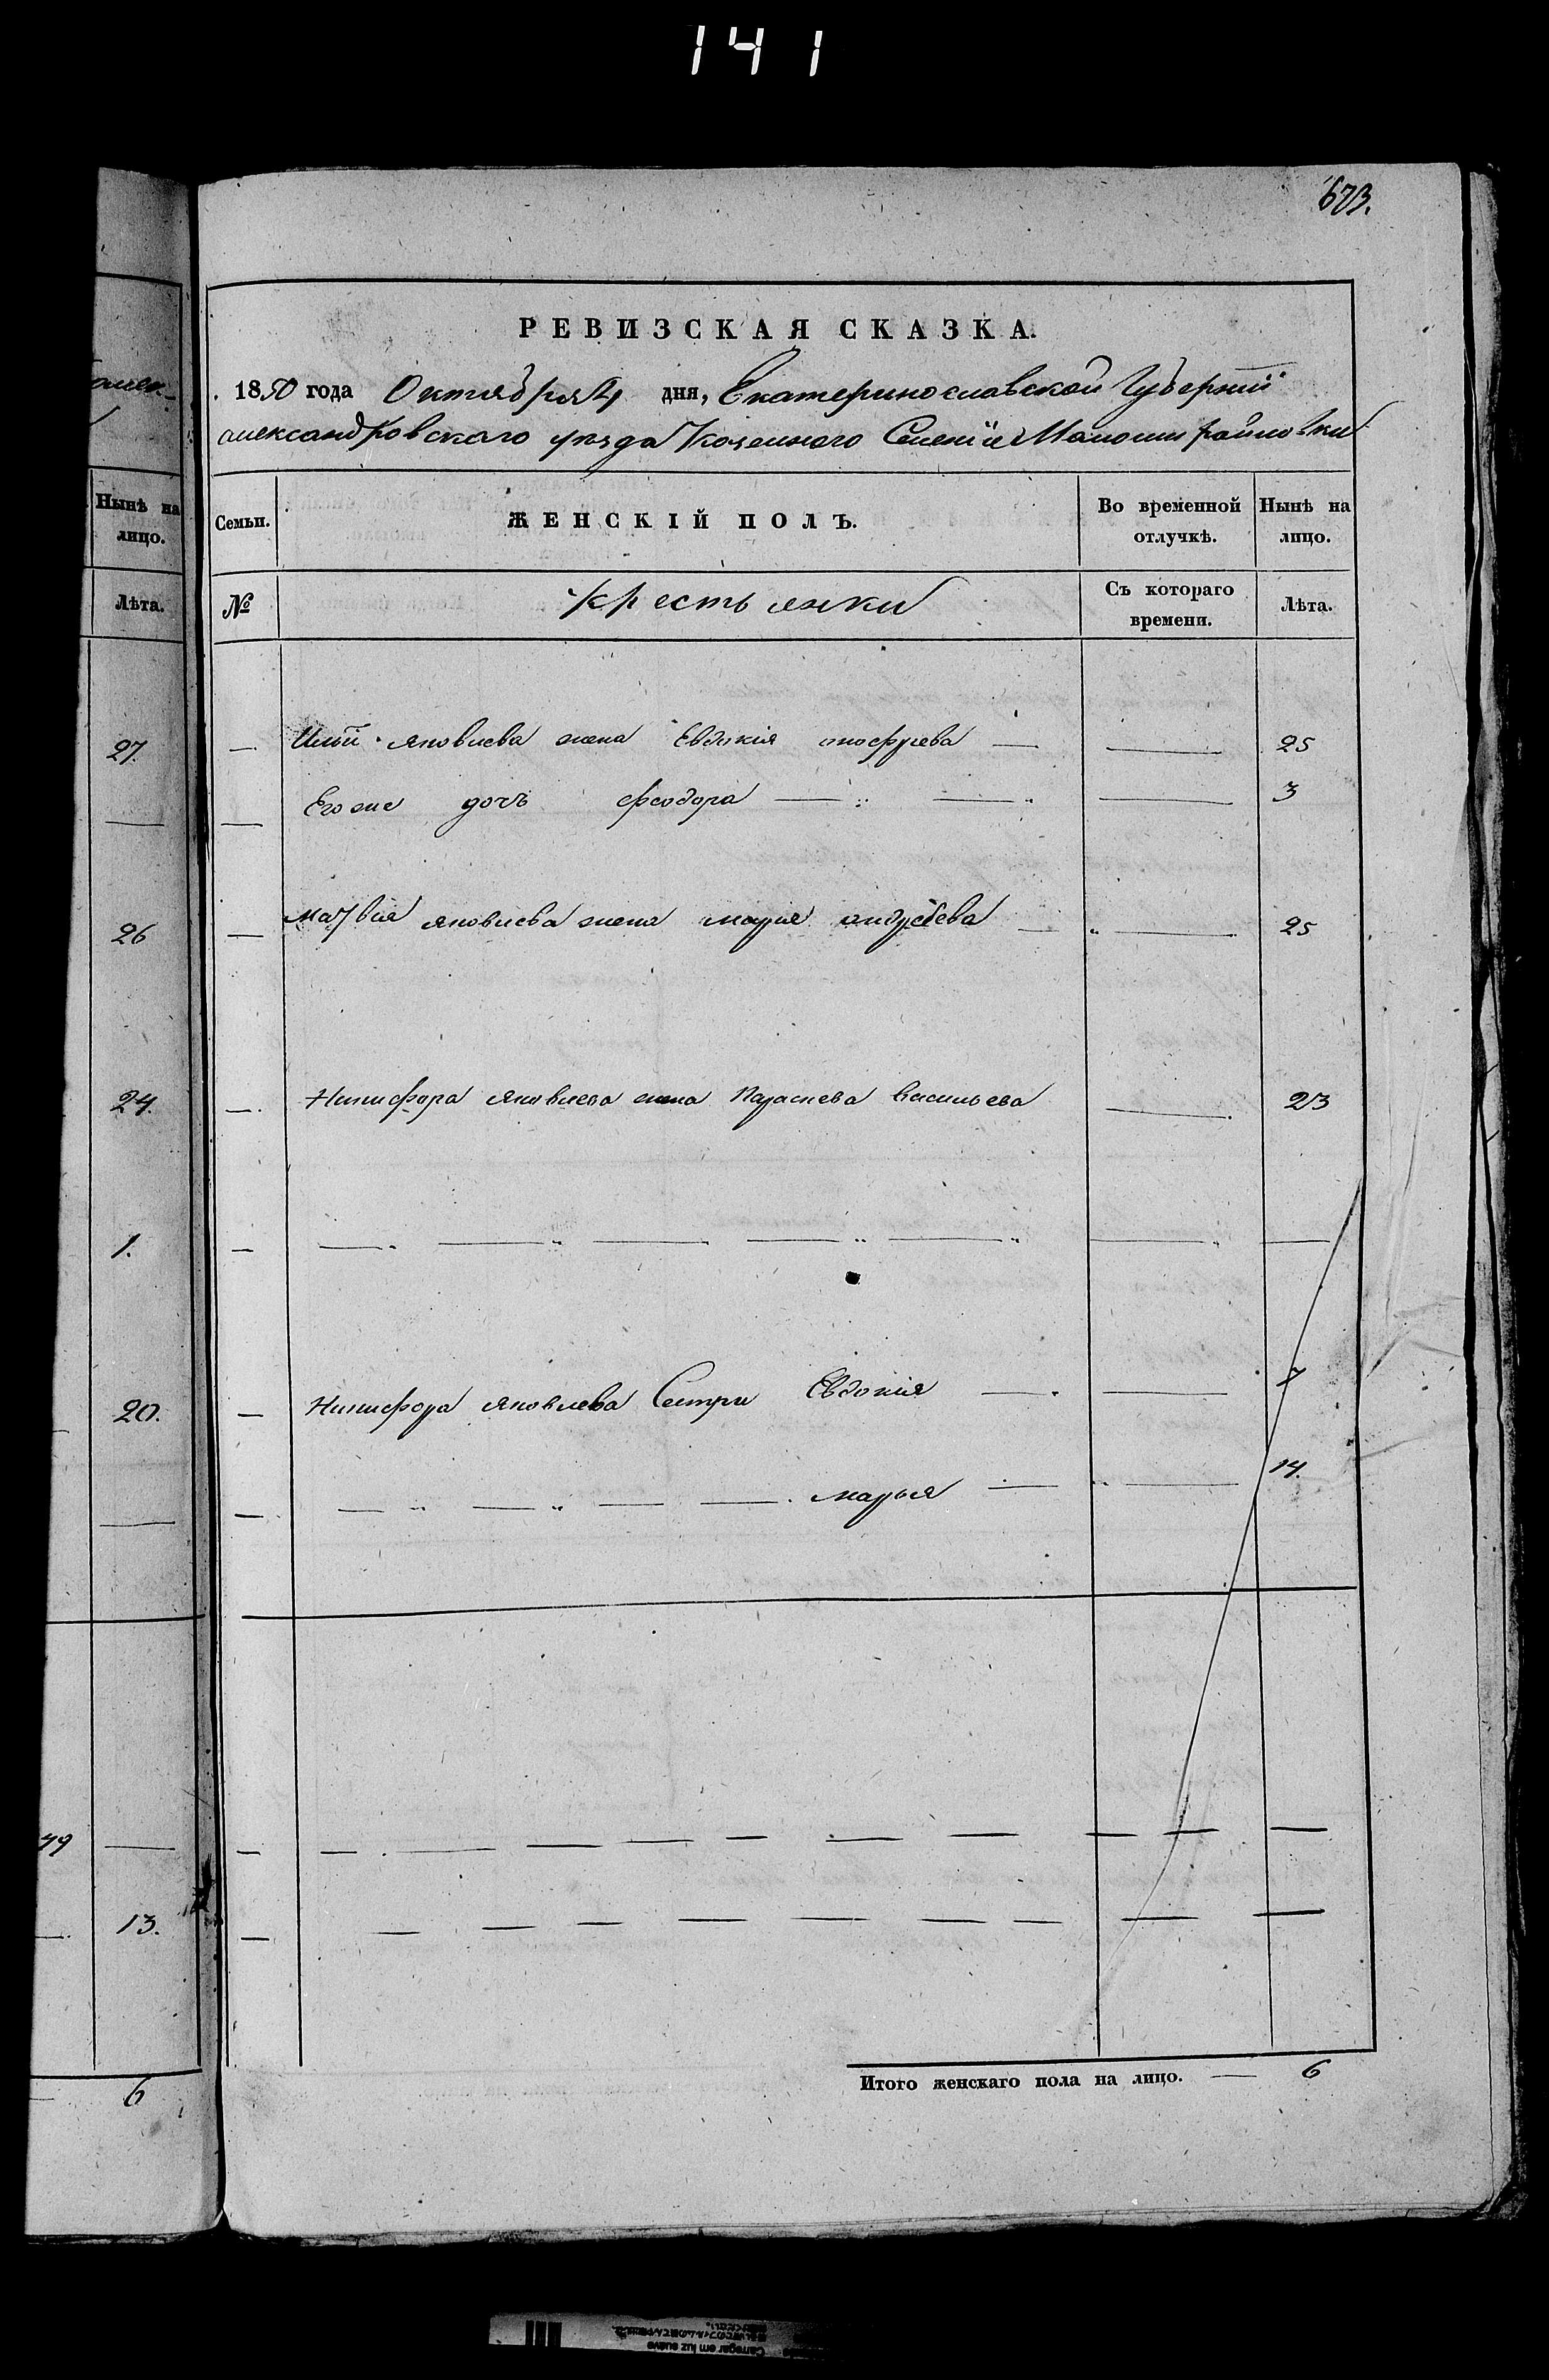 141
673.
РЕВИЗСКАЯ СКАЗКА.
1850 года Октября 4 дня, Екатеринославской Губерніи
александровскаго уѣзда Казеннаго Селенія Маломихайловки
Нынѣ на лицо.
Лѣта.
Семьи.
ЖЕНСКІЙ ПОЛЪ.
Во временной отлучкѣ.
Нынѣ на лицо.
№
крестьянки
Съ котораго времени.
Лѣта.
27. — Ильи яковлева жена Евдокія онофріева — — 25
— — Егоже дочь феодора — — — 3
26 — Матвія яковлева жена марія андрѣева — — 25
24. — Никифора яковлева жена Параскева васильева — 23
1. — — — — — — — —
20. — Никифора яковлева Сестри Евдокія — — 7
— — — — — — марья — — 14.
49 — — — — — — — — — — —
— 13. — — — — — — — — — —
6
Итого женскаго пола на лицо. — 6